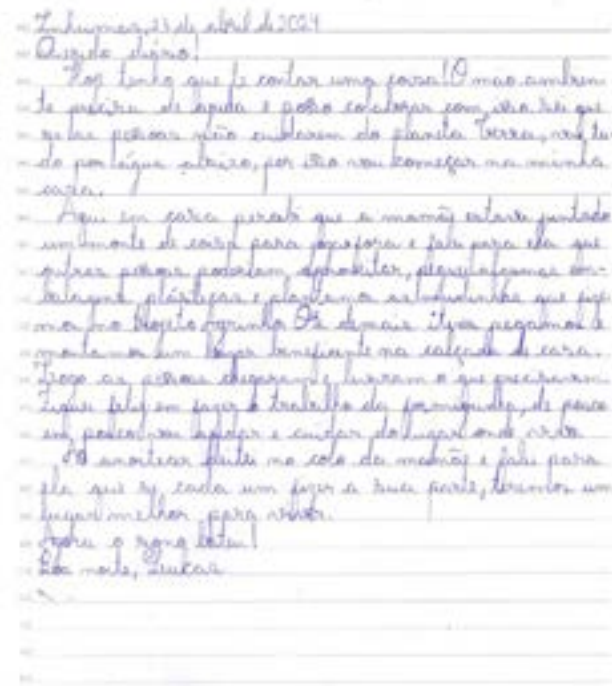 Inhumas, 23 de abril de 2024
Querido diário!
Hoje tenho que te contar uma coisa! O meio ambien
te precisa de ajuda e posso colaborar com isso. Sei que
se as pessoas não cuidarem do planeta Terra, vai tu
do por água abaixo, por isso vou começar na minha
casa.
Aqui em casa percebi que a mamãe estava juntado
um monte de coisa para jogar fora e falei para ela que
outras pessoas poderiam aproveitar,
plásticas e plantamos as mudinhas que fize
mos no Projeto Agrinho. Os demais itens pegamos e
montamos um bazar beneficente na calçada de casa.
Logo as pessoas chegaram e levaram o que precisavam.
Fiquei feliz em fazer o trabalho da formiguinha, de pouco
em pouco vou ajudar e cuidar do lugar onde vivo.
Ao anoitecer deitei no colo da mamãe e falei para
ela que se cada um fizer a sua parte, teremos um
lugar melhor para viver.
Agora o sono bateu!
Boa noite, Luckas